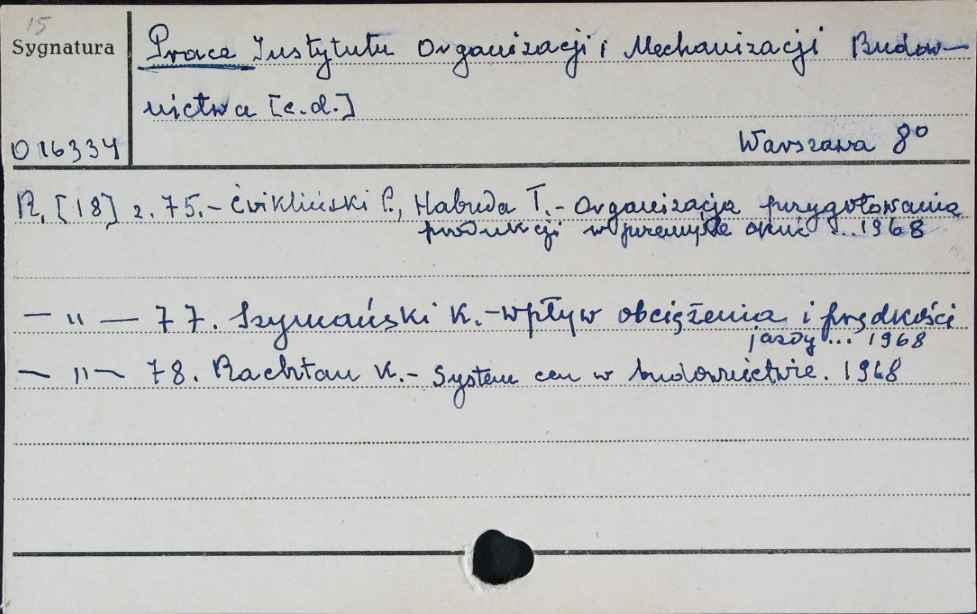 15
Sygnatura
Prace Instytutu Organizacji i Mechanizacji Budow-
nictwa [c.d.]
O 16334
Warszawa 8°
R. [18] z. 75.- Ćwikliński P., Habuda T. - Organizacja przygotowania
produkcji w przemyśle okuć ... 1968
— " — 77. Szymański K. - Wpływ obciążenia i prędkości
jazdy ... 1968
— " — 78. Rachtan K. - System cen w budownictwie. 1968